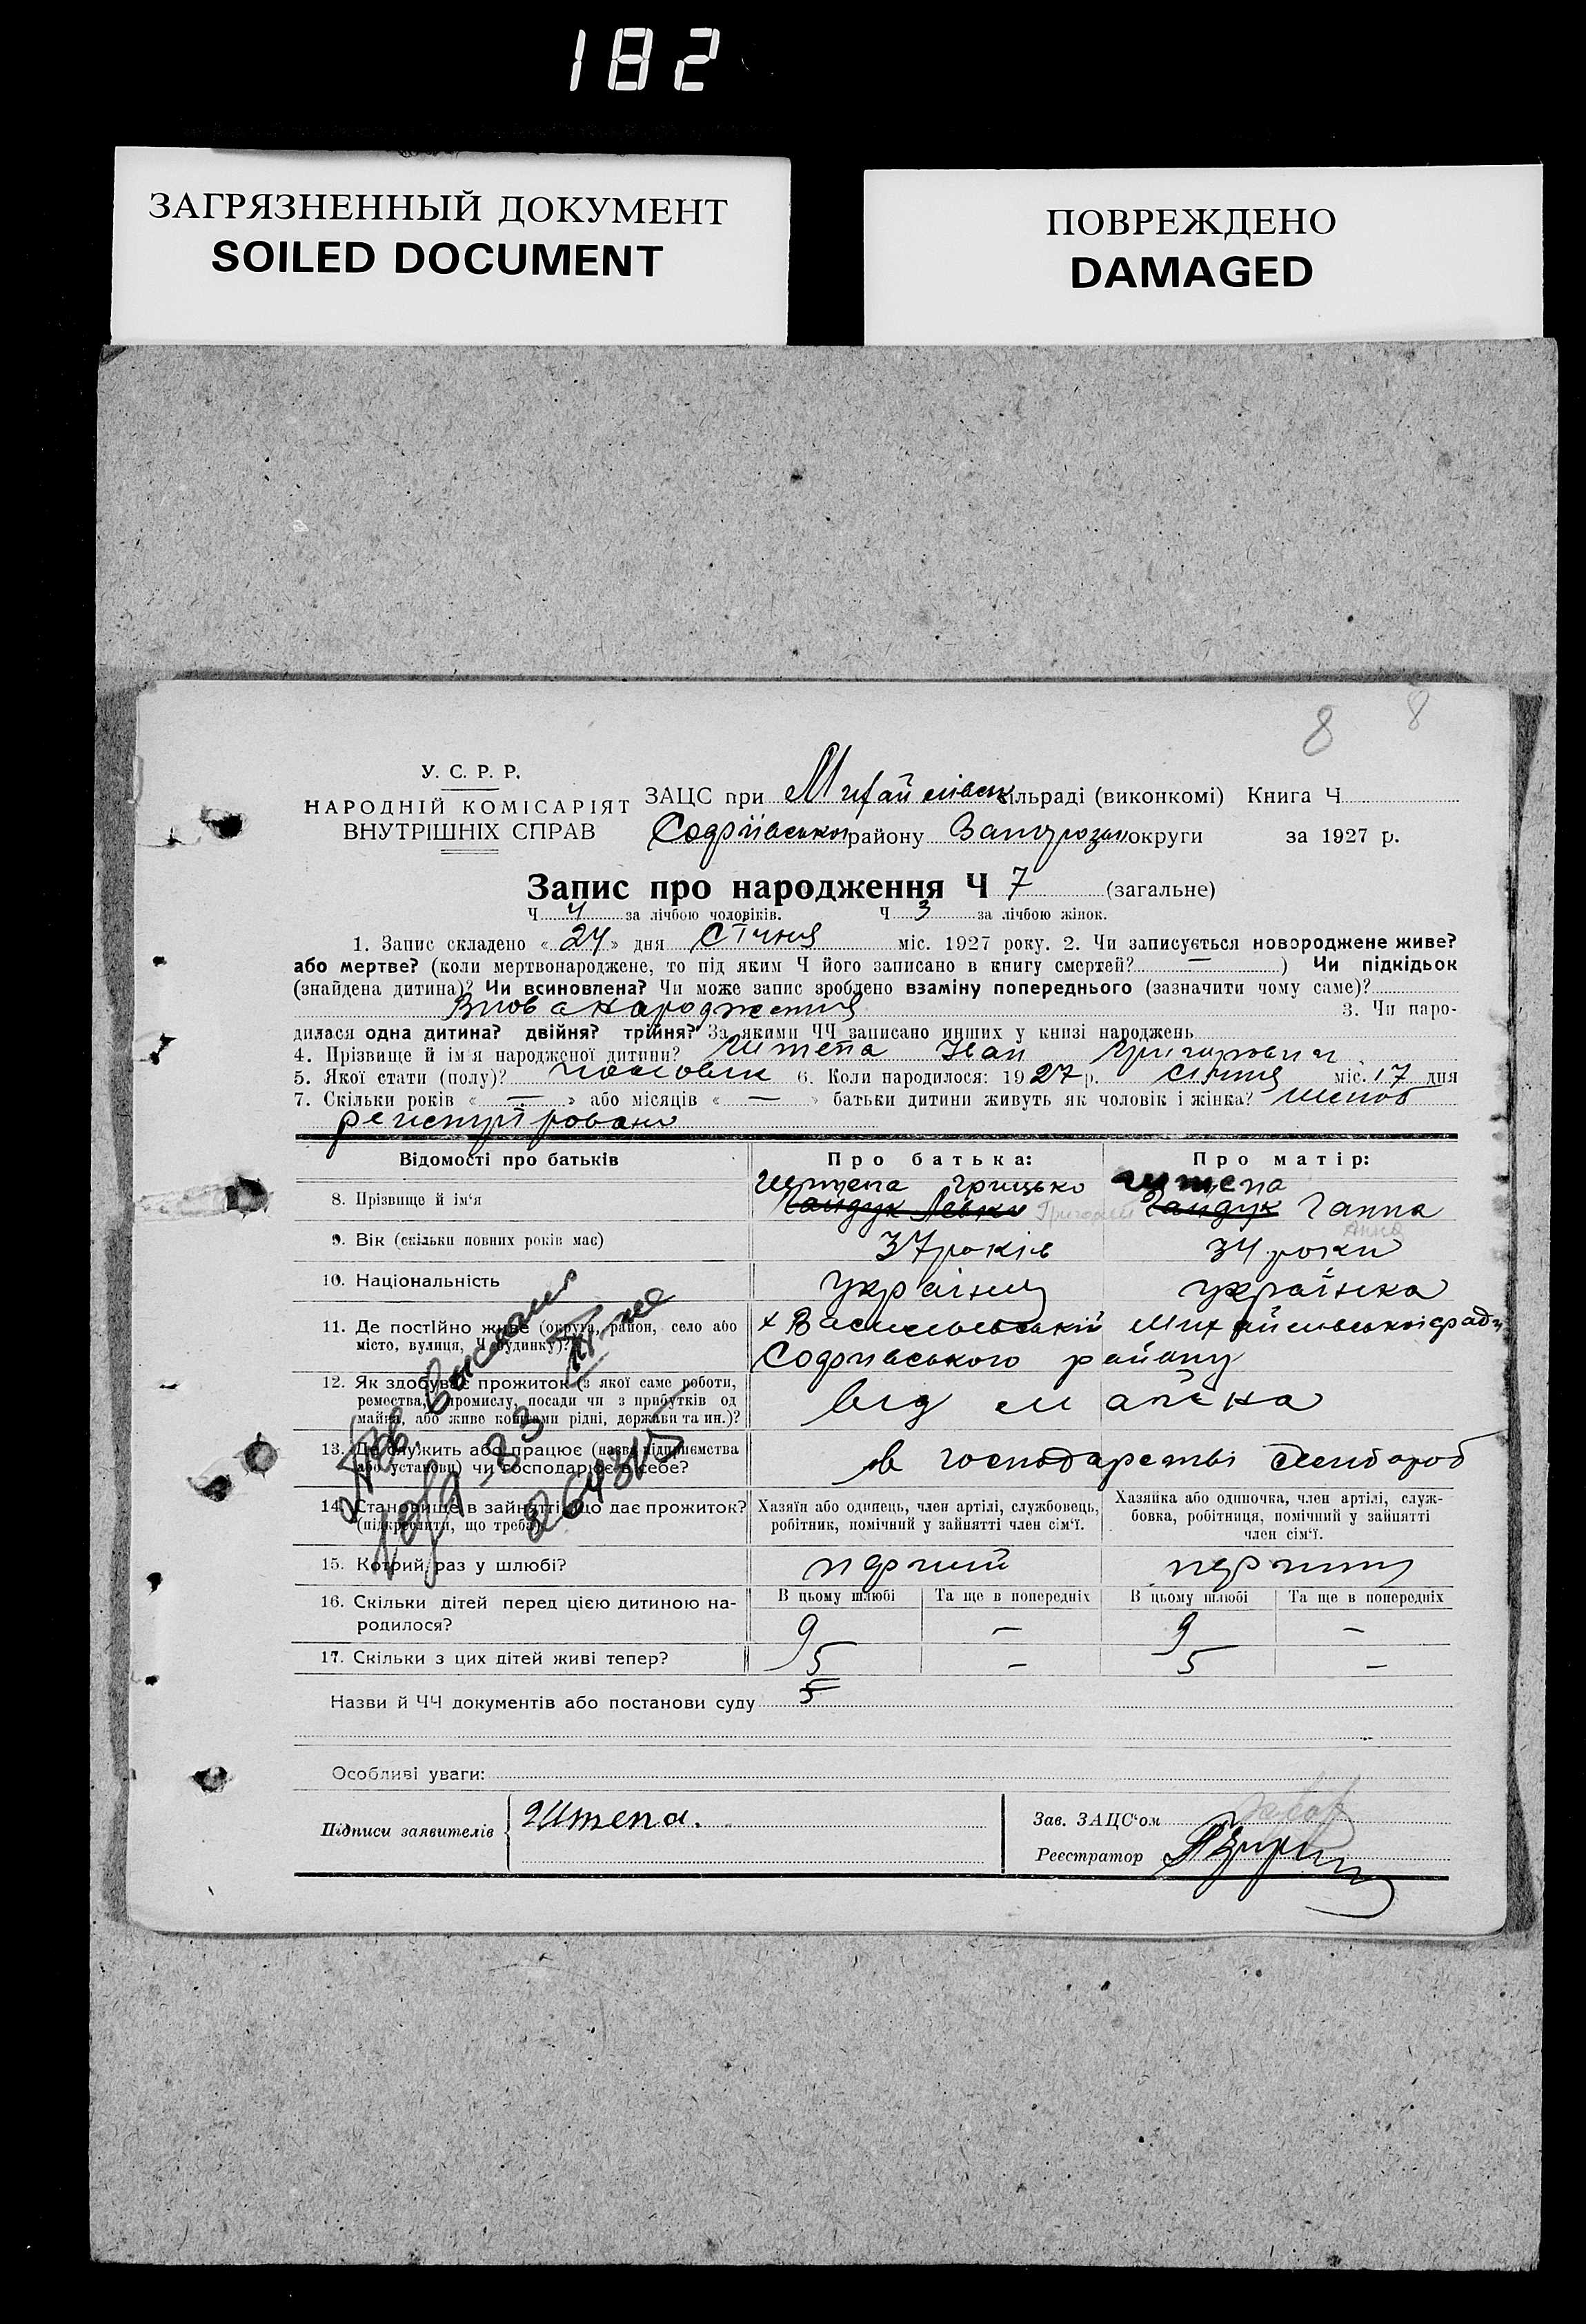 182
ЗАГРЯЗНЕННЫЙ ДОКУМЕНТ
SOILED DOCUMENT
ПОВРЕЖДЕНО
DAMAGED
8 8
У. С. Р. Р.
НАРОДНІЙ КОМІСАРІЯТ
ВНУТРІШНІХ СПРАВ
ЗАЦС при Михайлівськ сільраді (виконкомі) Книга Ч
Софіївської району Запорозьк округи за 1927 р.
Запис про народження Ч 7 (загальне)
Ч 4 за лічбою чоловіків. Ч 3 за лічбою жінок.
1. Запис складено « 24 » дня Січня міс. 1927 року. 2. Чи записується новороджене живе?
або мертве? (коли мертвонароджене, то під яким Ч його записано в книгу смертей? — ) Чи підкідьок
(знайдена дитина)? Чи всиновлена? Чи може запис зроблено взаміну попереднього (зазначити чому саме)?
Внов народження 3. Чи наро-
дилася одна дитина? двійня? трійня? За якими ЧЧ записано инших у книзі народжень
4. Прізвище й ім'я народженої дитини? Штепа Іван Григорович
5. Якої стати (полу)? чоловік 6. Коли народилося: 1927 р. січня міс. 17 дня
7. Скільки років « — » або місяців « — » батьки дитини живуть як чоловік і жінка? шлюб
регистріровано
Відомості про батьків Про батька: Про матір:
Штепа Грицько Штепа
8. Прізвище й ім'я Гайдук Левко Григорий Гайдук Ганна
Анна
9. Вік (скільки повних років має) 37 років 34 роки
10. Національність українець українка
11. Де постійно живе (округа, район, село або
місто, вулиця, Ч будинку)?
х Васильевський Михайлівської ради
Софіївського району
12. Як здобуває прожиток (з якої саме роботи,
ремества, промислу, посади чи з прибутків од
майна, або живе коштами рідні, держави та ин.)?
від маєтка
13. Де служить або працює (назва підприємства
або установи) чи господарює в себе?
в господарстві хлібороб
14. Становище в зайнятті, що дає прожиток?
(підкреслити, що треба)
Хазяїн або одинець, член артілі, службовець,
робітник, помічний у зайнятті член сім'ї.
Хазяйка або одиночка, член артілі, служ-
бовка, робітниця, помічний у зайнятті
член сім'ї.
15. Котрий раз у шлюбі? перший перший
16. Скільки дітей перед цією дитиною на-
родилося?
В цьому шлюбі Та ще в попередніх В цьому шлюбі Та ще в попередніх
9 — 9 —
17. Скільки з цих дітей живі тепер? 5 — 5 —
Назви й ЧЧ документів або постанови суду 5
Особливі уваги:
Підписи заявителів Штепа.
Зав. ЗАЦС'ом
Реєстратор